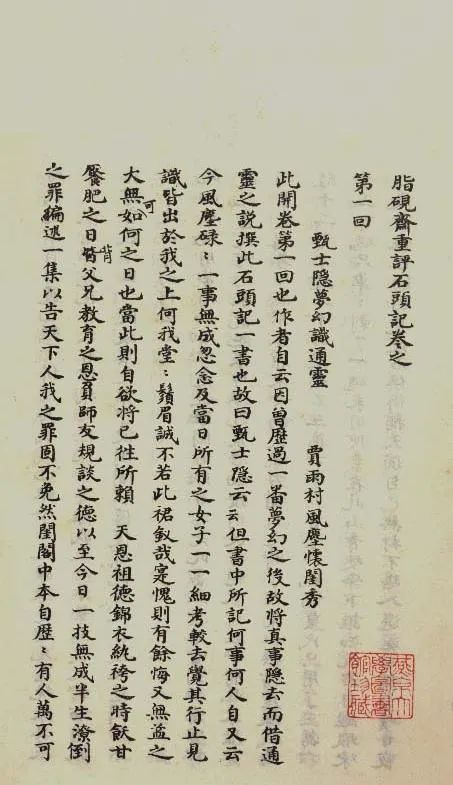 脂硯齋重評石頭記卷之
第一回
甄士隐夢幻識通靈　賈雨村風塵懷閨秀
此開卷第一回也作者自云因曾歷過一番夢幻之後故將真事隐去而借通
靈之説撰此石頭記一書也故曰甄士隐云云但書中所記何事何人自又云
今風塵碌：一事無成忽念及當日所有之女子一一細考較去覺其行止見
識皆出於我之上何我堂：鬚眉誠不若此裙釵哉寔愧則有餘悔又無益之
大無可如何之日也當此則自欲將已往所賴　天恩祖德錦衣紈袴之時飫甘
饜肥之日背父兄教育之恩負師友規談之德以至今日一技無成半生潦倒
之罪編述一集以告天下人我之罪固不免然閨閣中本自歷：有人萬不可
燕京大
學圖書
館珍藏